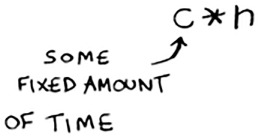 c*n
SOME
FIXED AMOUNT
OF TIME